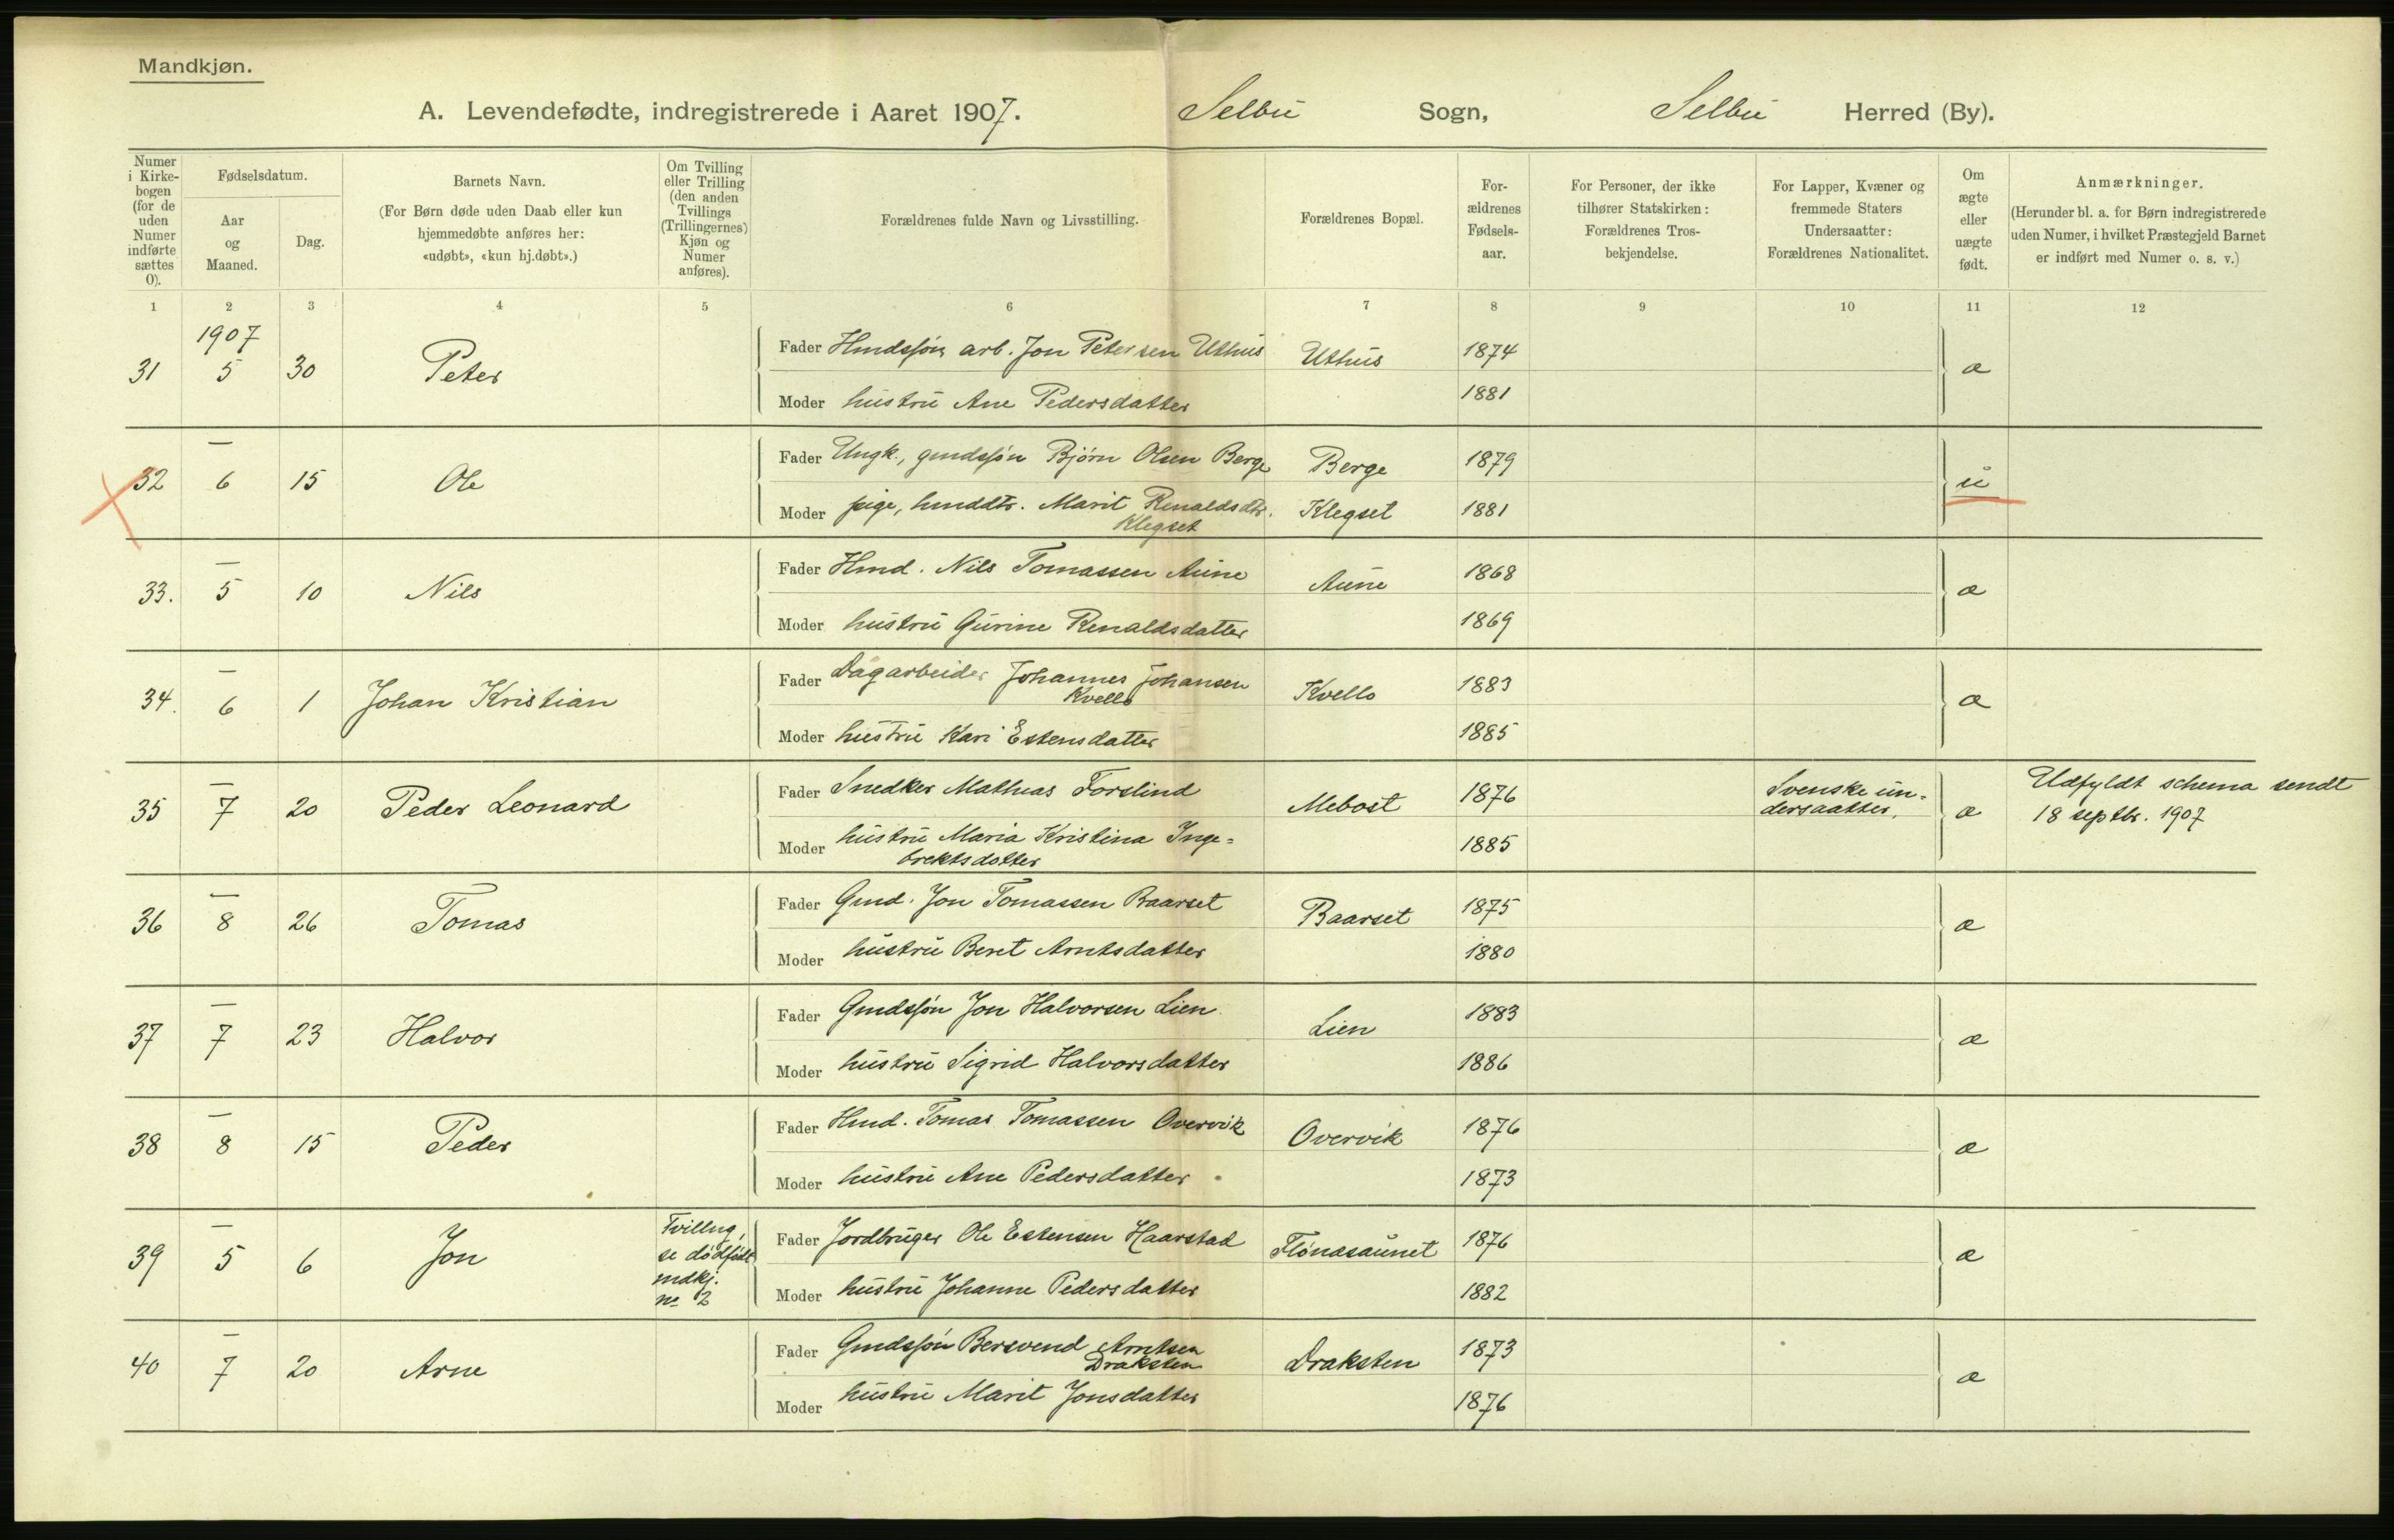 Mandkjøn.
A. Levendefødte, indregistrerede i Aaret 1907. Selbu Sogn, Selbu Herred (By).
Numer i Kirkebogen (for de uden Numer indførte sættes 0).
Fødselsdatum.
Aar og Maaned.
Dag.
Barnets Navn.
(For Børn døde uden Daab eller kun hjemmedøbte anføres her: «udøbt», «kun hj.døbt».)
Om Tvilling eller Trilling (den anden Tvillings (Trillingernes) Kjøn og Numer anføres).
Forældrenes fulde Navn og Livsstilling.
Forældrenes Bopæl.
Forældrenes Fødselsaar.
For Personer, der ikke tilhører Statskirken: Forældrenes Trosbekjendelse.
For Lapper, Kvæner og fremmede Staters Undersaatter: Forældrenes Nationalitet.
Om ægte eller uægte født.
Anmærkninger.
(Herunder bl. a. for Børn indregistrerede uden Numer, i hvilket Præstegjeld Barnet er indført med Numer o. s. v.)
1 2 3 4 5 6 7 8 9 10 11 12
1907
31 5 30 Peter Fader Hmdssøn, arb. Jon Petersen Uthus Uthus 1874 æ
Moder hustru Ane Pedersdatter 1881
32 — 6 15 Ole Fader Ungk., gmdssøn Bjørn Olsen Berge Berge 1879 u
Moder pige, hmddtr. Marit Renaldsdtr. Klegset Klegset 1881
33. — 5 10 Nils Fader Hmd. Nils Tomassen Aune Aune 1868 æ
Moder hustru Gurine Renaldsdatter 1869
34. — 6 1 Johan Kristian Fader Dagarbeider Johannes Johansen Kvello Kvello 1883 æ
Moder hustru Kari Estensdatter 1885
35 — 7 20 Peder Leonard Fader Snedker Mathias Forslind Mebost 1876 Svenske undersaatter. æ Udfyldt schema sendt 18 septbr. 1907
Moder hustru Maria Kristina Inge=brektsdotter 1885
36 — 8 26 Tomas Fader Gmd. Jon Tomassen Baarset Baarset 1875 æ
Moder hustru Beret Arntsdatter 1880
37 — 7 23 Halvor Fader Gmdssøn Jon Halvorsen Lien Lien 1883 æ
Moder hustru Sigrid Halvorsdatter 1886
38 — 8 15 Peder Fader Hmd. Tomas Tomassen Overvik Overvik 1876 æ
Moder hustru Ane Pedersdatter 1873
39 — 5 6 Jon Tvilling, se dødfødt mdkj. no 2 Fader Jordbruger Ole Estensen Haarstad Flønæsaunet 1876 æ
Moder hustru Johanne Pedersdatter 1882
40 — 7 20 Arne Fader Gmdssøn Bersvend Arntsen Draksten Draksten 1873 æ
Moder hustru Marit Jonsdatter 1876